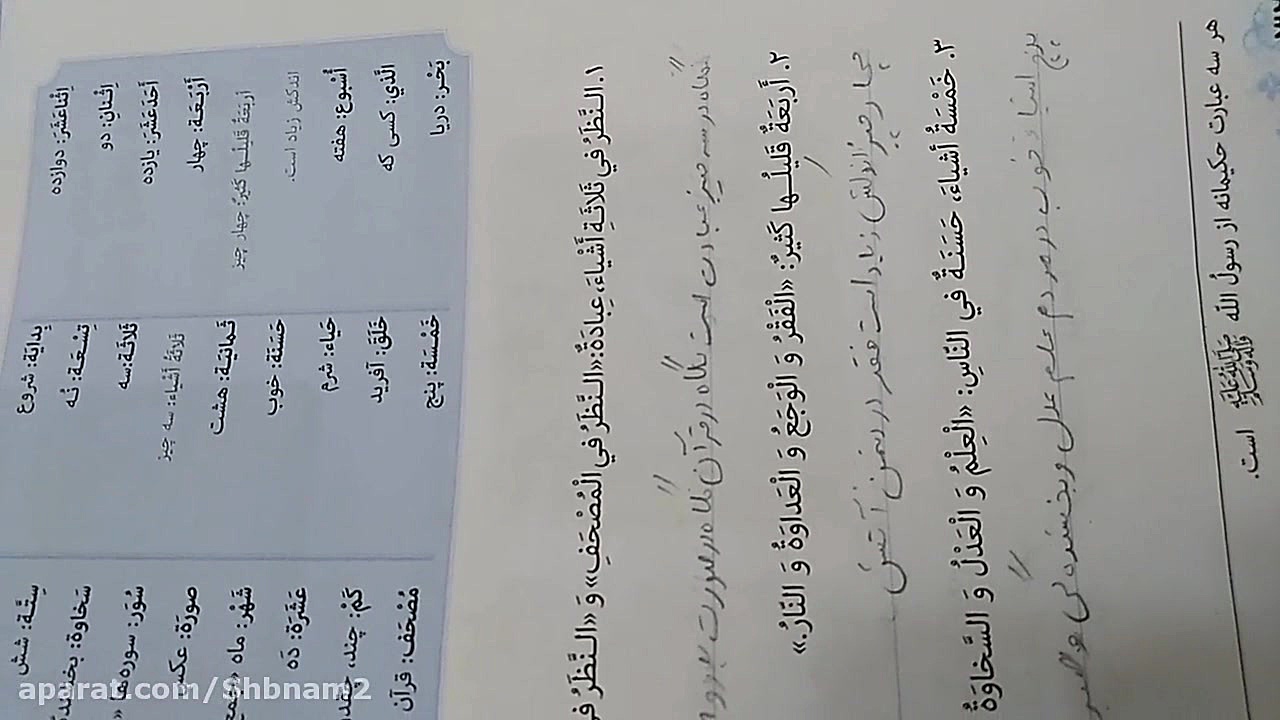 بَحْر: دریا
الَّذي: کسی که
أُسْبوع: هفته
اندکش زیاد است.
أَرْبَعَةٌ قَليلُها كَثيرٌ: چهار چیز
أَرْبَعَة: چهار
أَحَدَعَشَرَ: یازده
اِثْنانِ: دو
اِثْناعَشَرَ: دوازده
خَمْسَة: پنج
خَلَقَ: آفرید
حَياء: شرم
حَسَنَة: خوب
ثَمانيَة: هشت
ثَلاثَةُ أَشْياءَ: سه چیز
ثَلاثَة: سه
تِسْعَة: نُه
بِدايَة: شروع
مُصْحَف: قرآن
كَمْ: چند، چقدر
عَشَرَة: دَه
شَهْر: ماه
صورَة: عکس
سُوَر: سوره ها «
سَخاوَة:
سِتَّة: شش
۱. اَلنَّظَرُ في ثَلاثَةِ أَشْياءَ، عِبادَةٌ: «اَلنَّظَرُ فِي الْمُصْحَفِ» وَ «اَلنَّظَرُ
نگاه در سه چیز عبادت است نگاه در قرآن نگاه در صورت
۲. أَرْبَعَةٌ قَليلُها كَثيرٌ: «اَلْفَقْرُ وَ الْوَجَعُ وَ الْعَداوَةُ وَ النّارُ.»
چهار چیز اندکش زیاد است فقر درد دشمنی آتش
۳. خَمْسَةُ أَشْياءَ، حَسَنَةٌ فِي النّاسِ: «اَلْعِلْمُ وَ الْعَدْلُ وَ السَّخاوَةُ
خوب در مردم علم عدل و بخشندگی و
هر سه عبارت حکیمانه از رسولُ الله ﷺ است.
aparat.com/Shbnam2